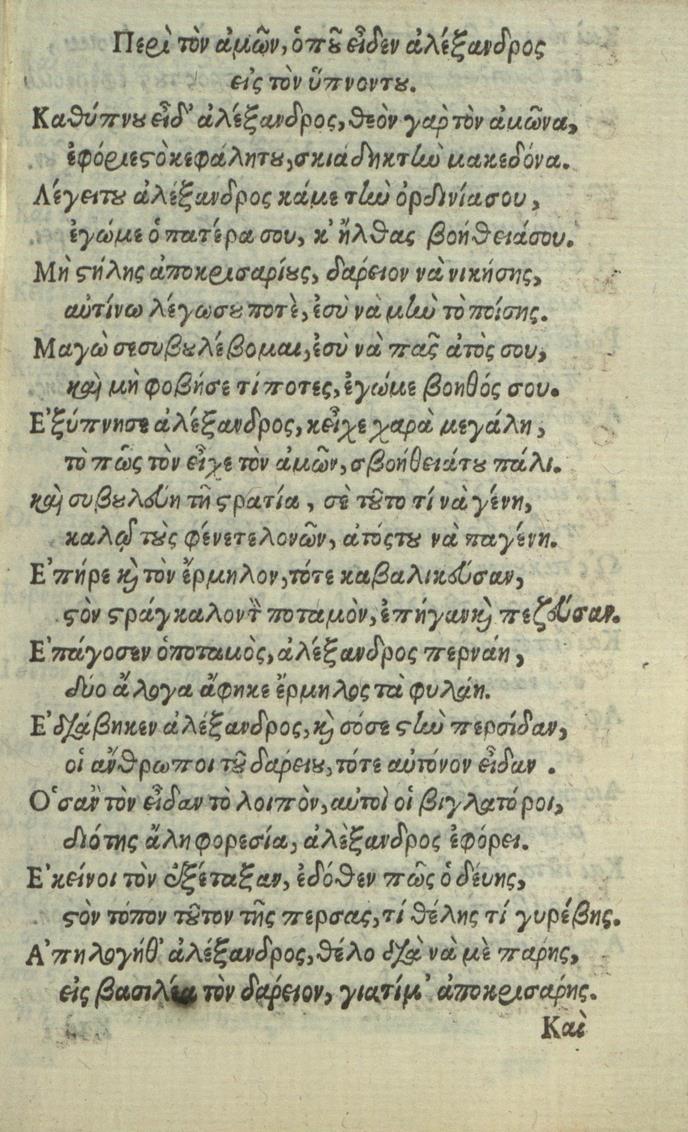 Περὶ τὸν ἀμῶν, ὁποῦ εἶδεν ἀλέξανδρος
εἰς τὸν ὕπνοντȣ.
Καθύπνȣ εἶδ' ἀλέξανδρος, θεὸν γαρ τὸν ἀμῶνα,
ἐφόριες ὁκεφάλητȣ, σκιαδηκτὼ μακεδόνα.
Λέγειτȣ ἀλέξανδρος κάμε τὼ ὀρδινίασου,
ἐγώμε ὁ πατέρα σου, κ' ἦλθας βοήθειάσου.
Μὴ ςήλης ἀποκρισαρίȣς, δαρειον νὰ νικήσης,
αὐτίνω λέγωσȣ ποτὲ, ἐσὺ νὰ μὼ τὸ ποίσης.
Μαγὼ σεσυβȣλέβομαι, ἐσὺ νὰ πας ἀτὸς σου,
καὶ μὴ φοβήσε τίποτες, ἐγώμε βοηθός σου.
Ε'ξύπνησε ἀλέξανδρος, κεἶχε χαρὰ μεγάλη,
τὸ πῶς τὸν εἶχε τὸν ἀμῶν, σβοήθειάτȣ πάλι.
καὶ συβȣλεύη τῆ ςρατία, σὲ τȣ̃το τί νὰ γένη,
καλοὶ τȣ̀ς φένετελονῶν, ἀτόςτȣ νὰ παγένη.
Ε'πήρε καὶ τὸν ἔρμηλον, τότε καβαλικεύσαν,
ςὸν ςράγκαλοντὶ ποταμὸν, ἐπήγαν καὶ πεζεύσαν.
Ε'πάγοσεν ὁποταμὸς, ἀλέξανδρος περνάη,
δύο ἄλογα ἄφηκε ἔρμηλος τὰ φυλάη.
Ε'διάβηκεν ἀλέξανδρος, καὶ σόσε ςτὼ περσίδαν,
οἱ ἄνθρωποι τȣ̃ δαρείȣ, τότε αὐτόνον εἶδαν.
Ο'σαν τὸν εἶδαν τὸ λοιπὸν, αὐτοὶ οἱ βιγλατόροι,
διότης ἄλη φορεσία, ἀλὲξανδρος ἐφόρει.
Ε'κείνοι τὸν ἐξέταξαν, ἐδόθεν πῶς ὁ δέυης,
ςὸν τόπον τȣ̃τον τῆς περσας, τί θέλης τί γυρέβης.
Α'πηλογήθ' ἀλέξανδρος, θέλο διὰ νὰ μὲ παρης,
εἰς βασιλέα τὸν δαρειον, γιατίμ' ἀποκρισάρης.
Καὶ